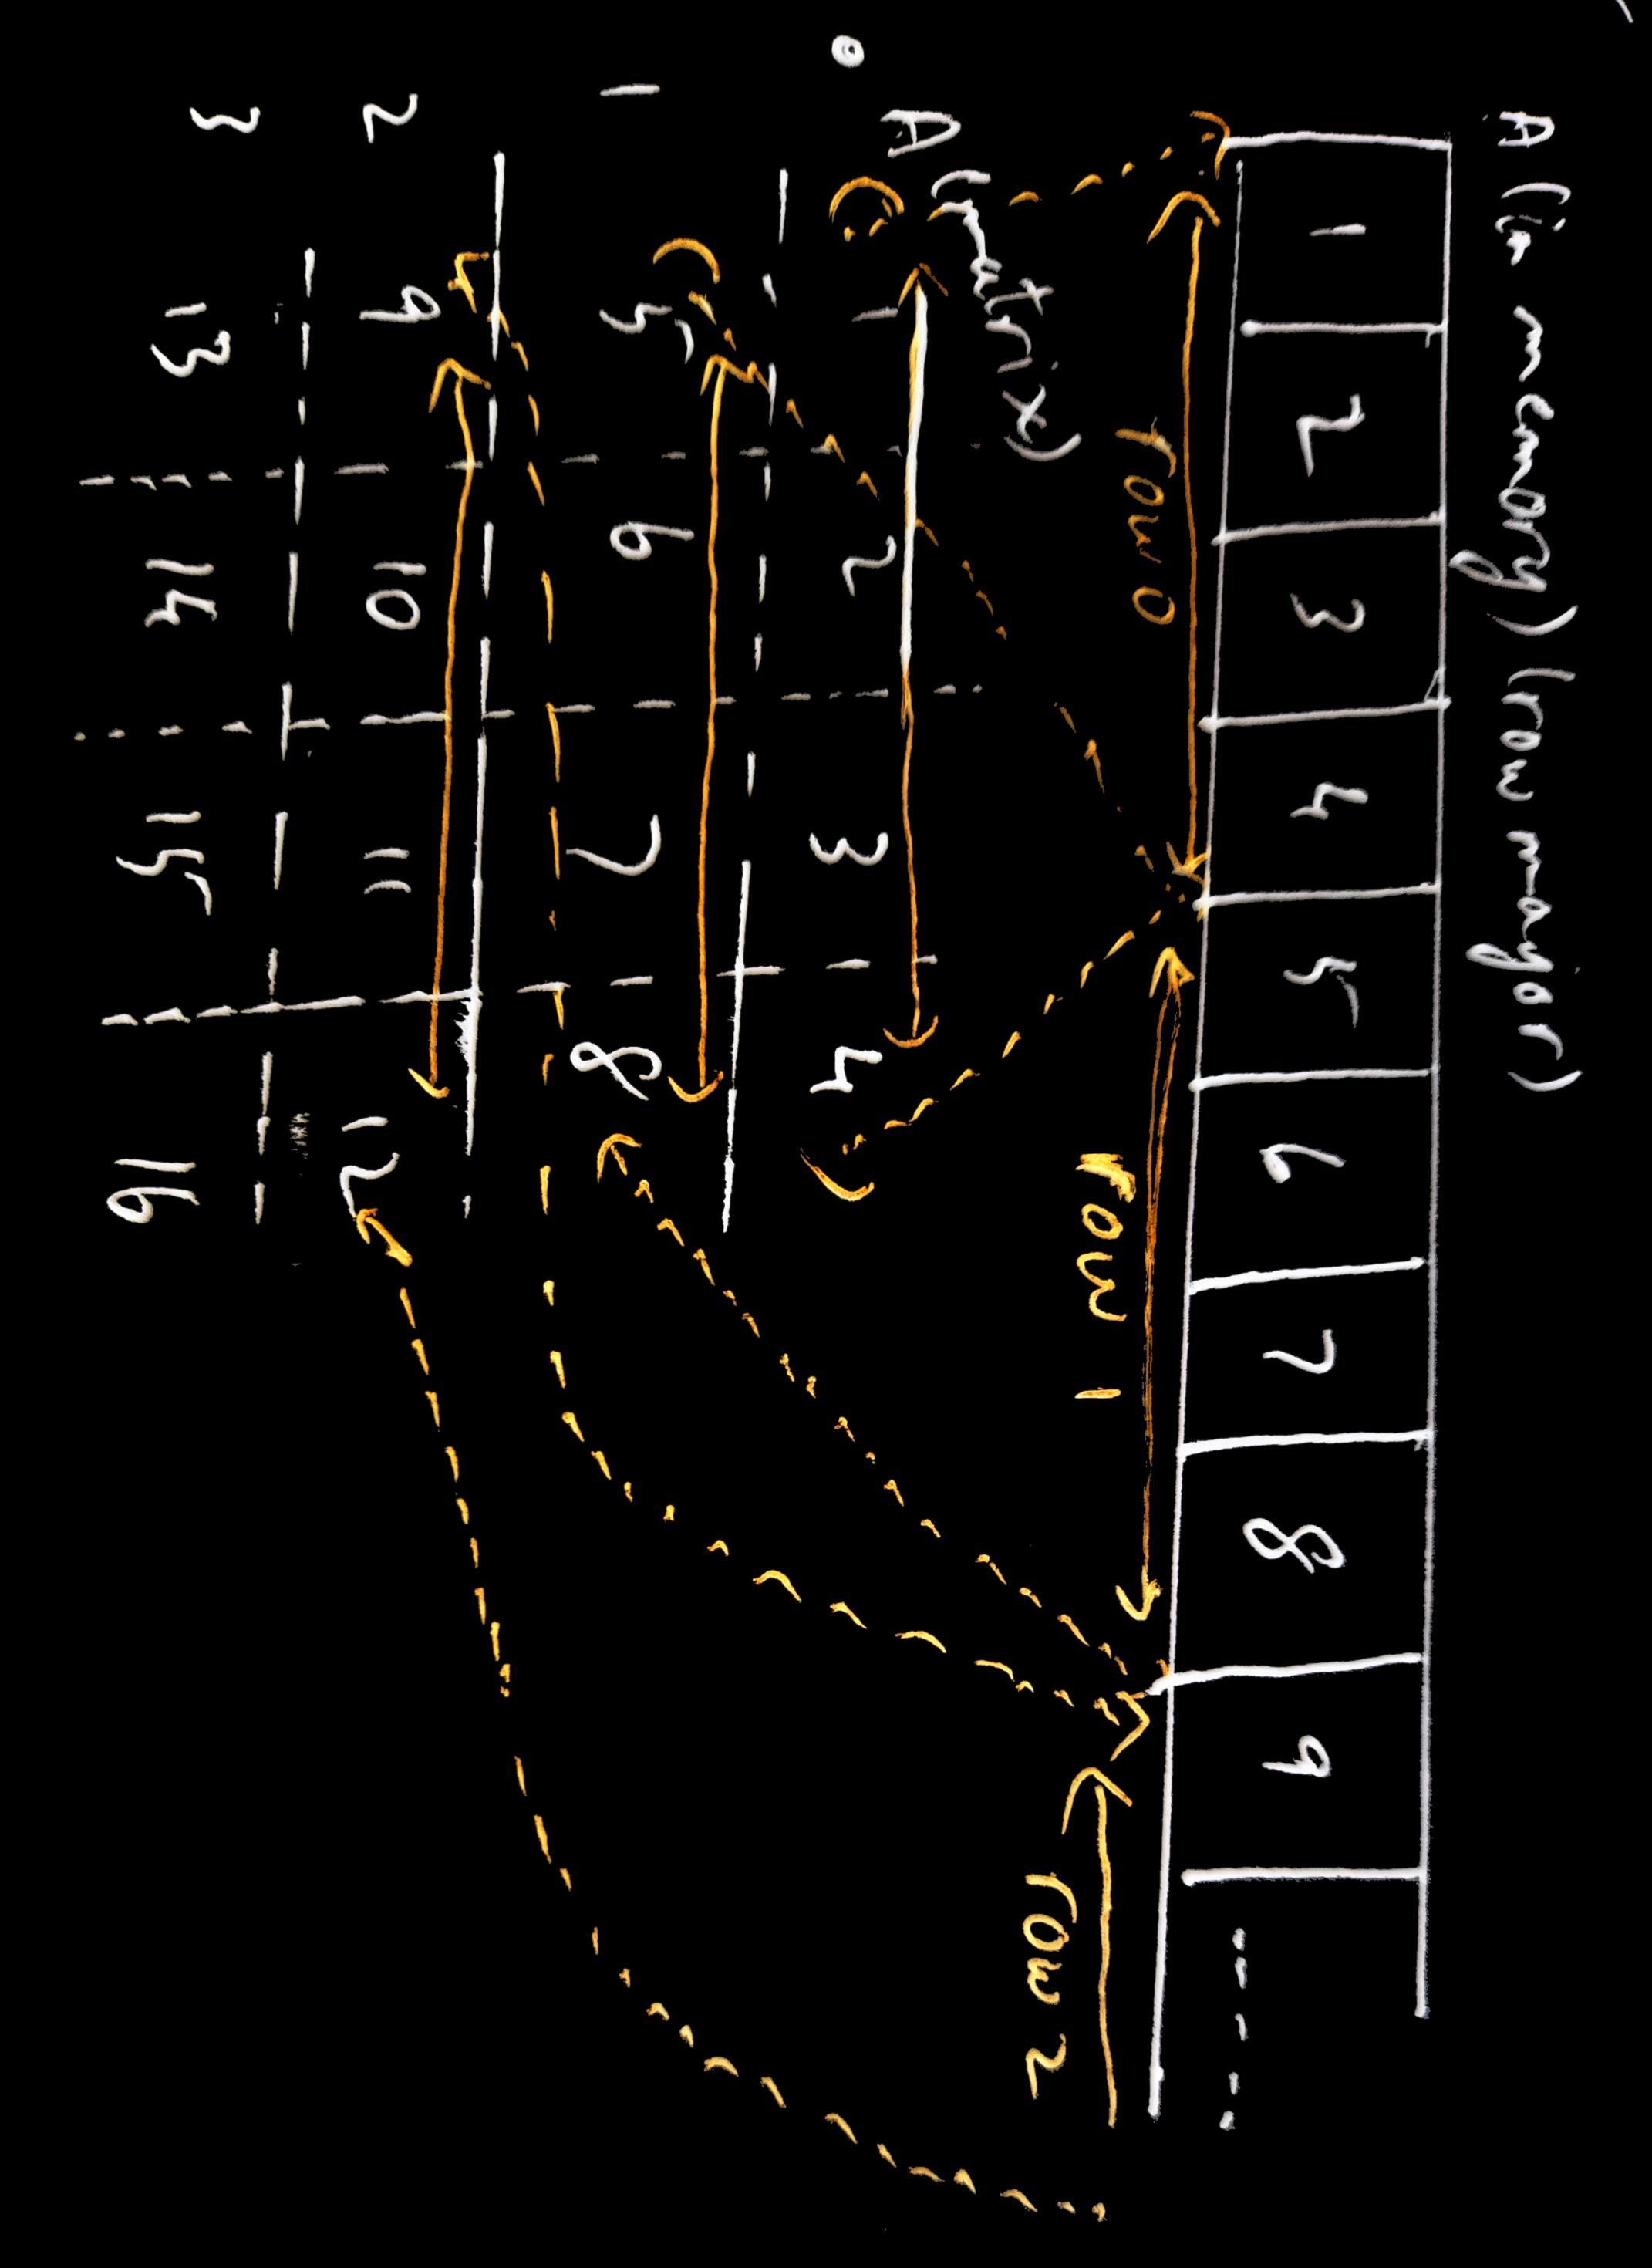 A (in memory) (row major)
1 2 3 4 5 6 7 8 9 ----
row 0 row 1 row 2
A (matrix)
0 1 2 3 4
1 5 6 7 8
2 9 10 11 12
3 13 14 15 16